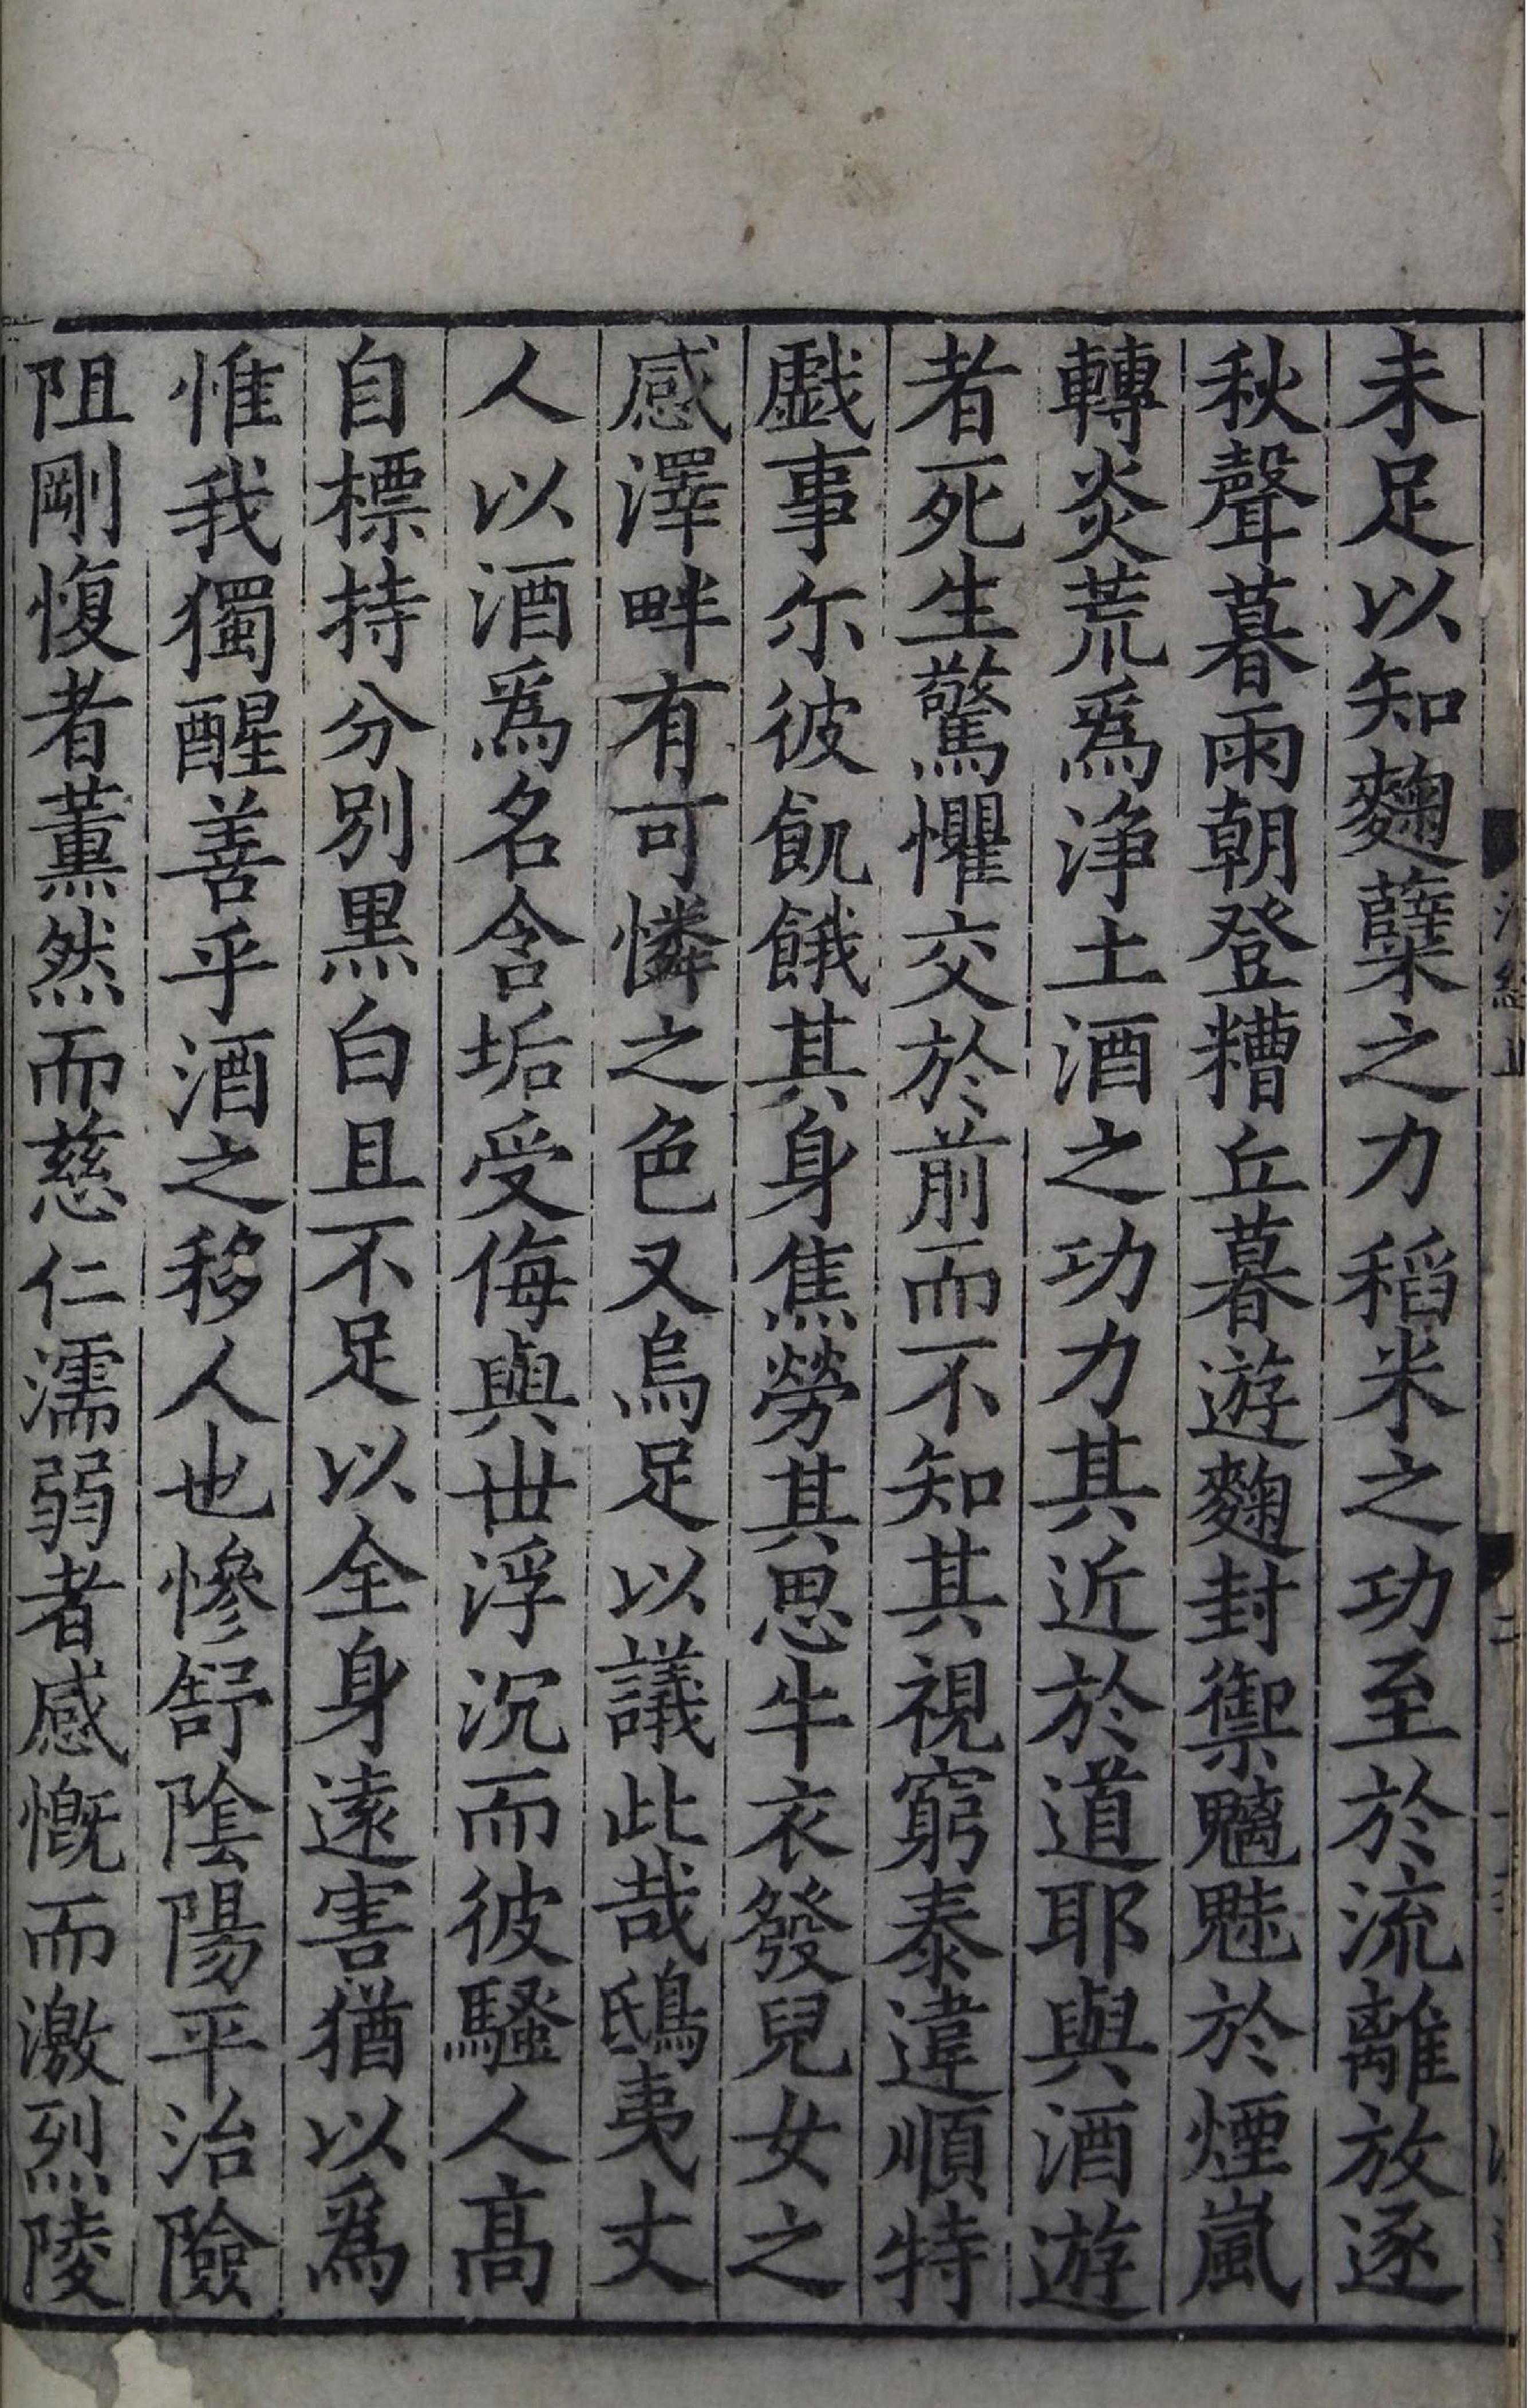 未足以知麴蘖之力稻米之功至於流離放逐
秋聲暮雨朝登糟丘暮遊麴封禦魑魅於煙嵐
轉炎荒爲浄土酒之功力其近於道耶與酒遊
者死生驚懼交於前而不知其視窮泰違順特
戯事尓彼飢餓其身焦勞其思牛衣發兒女之
感澤畔有可憐之色又烏足以議此哉鴟夷丈
人以酒爲名含垢受侮與丗浮沉而彼騷人髙
自標持分别黒白且不足以全身逺害猶以爲
惟我獨醒善乎酒之移人也慘舒陰陽平治險
阻剛愎者薫然而慈仁濡弱者感慨而激烈陵